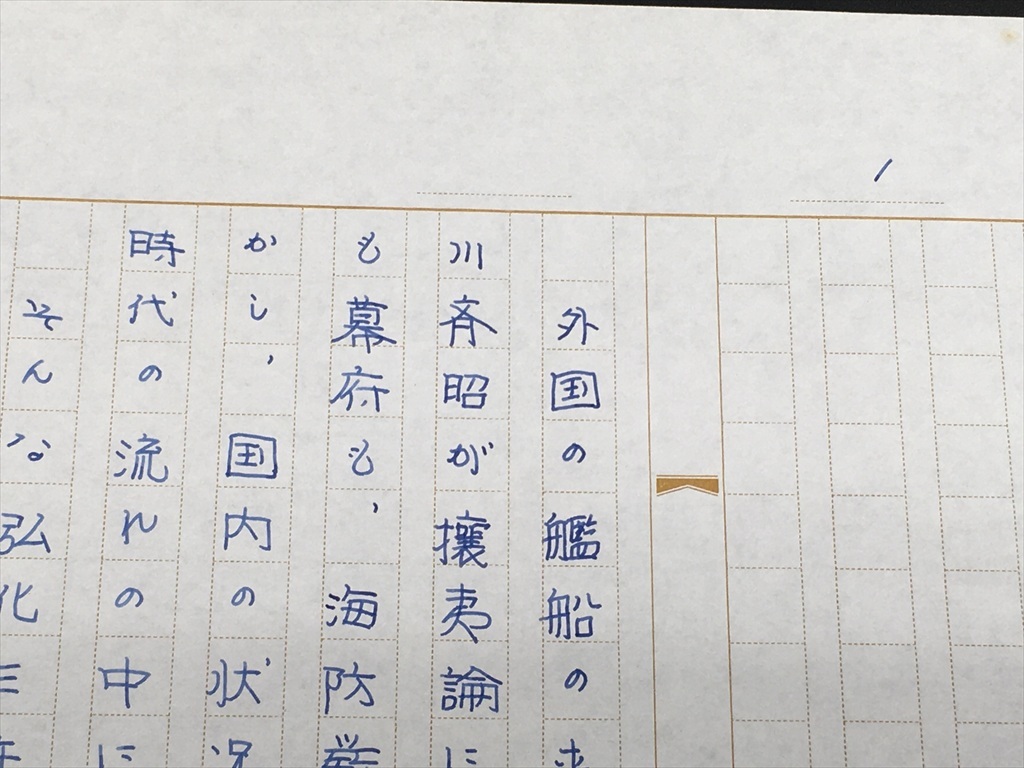 1
外国の艦船の来
川斉昭が攘夷論に
も幕府も、海防
かし、国内の状況
時代の流れの中に
そんな弘化三年